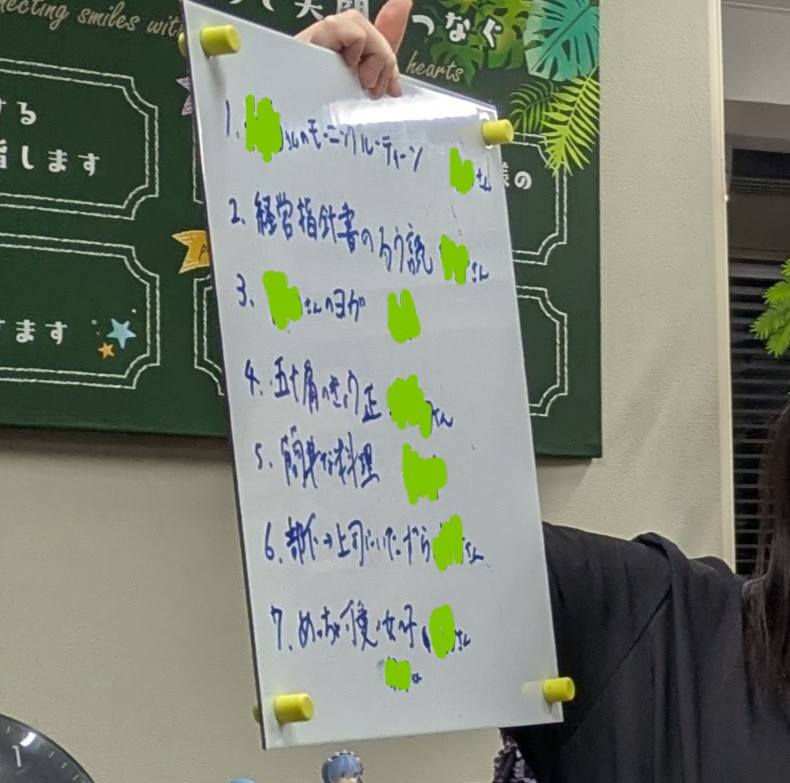 necting smiles wit
つなぐ
hearts
ける
指します
様の
ます
1. さんのモーニングルーティーン
さん
2. 経営指針書のろう読 さん
3. さんのヨガ
4. 五十肩のきょう正 さん
5. 簡単な料理
6. 部下→上司にいたずら さん
7. めっちゃ 女子 さん
1